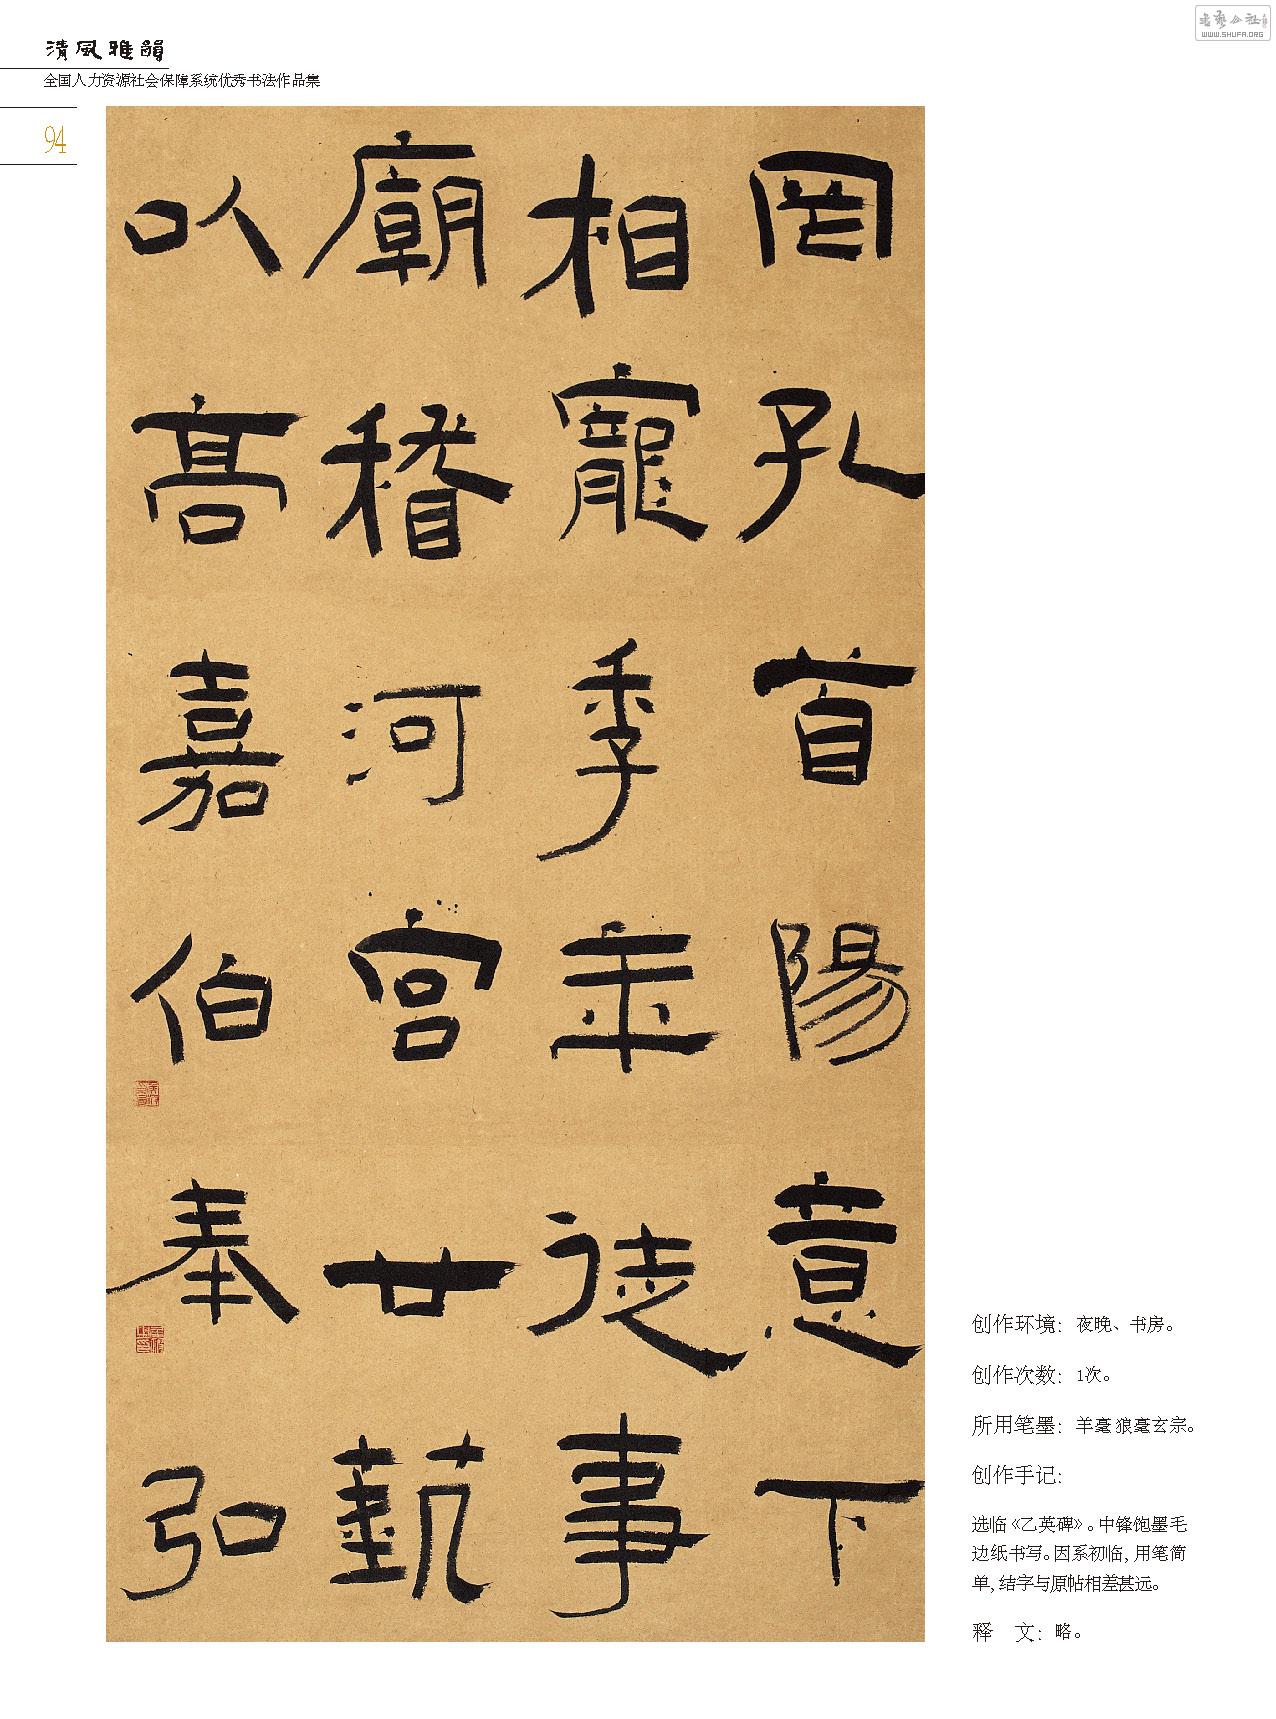 清風雅韻
全国人力资源社会保障系统优秀书法作品集
94
WWW.SHUFA.ORG
罔孔首陽意下
相寵季年徒事
廟稽河宫廿藝
以高嘉伯奉弘
创作环境：夜晚、书房。
创作次数：1次。
所用笔墨：羊毫 狼毫玄宗。
创作手记：
选临《乙英碑》。中锋饱墨毛
边纸书写。因系初临，用笔简
单，结字与原帖相差甚远。
释　文：略。